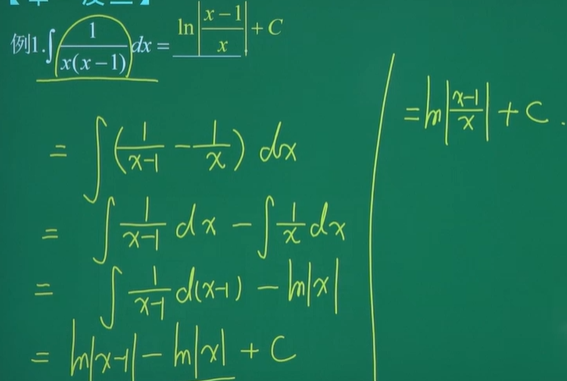 例1. ∫ 1/(x(x−1)) dx = ln|(x−1)/x| + C
= ∫ (1/(x-1) − 1/x) dx
= ∫ 1/(x-1) dx − ∫ 1/x dx
= ∫ 1/(x-1) d(x-1) − ln|x|
= ln|x-1| − ln|x| + C
= ln|(x-1)/x| + C.